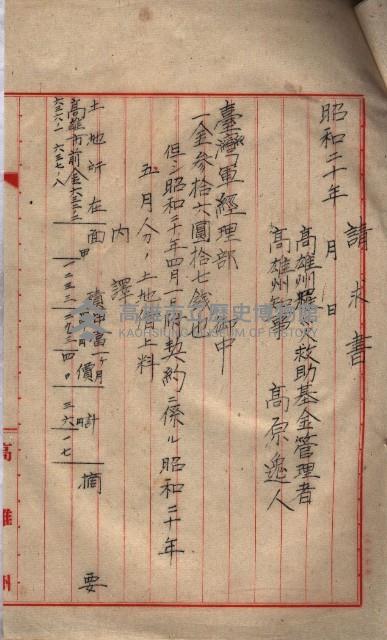 請求書
昭和二十年　月　日
高雄州罹災救助基金管理者
高雄州知事　高原逸人
臺灣軍經理部　御中
一金參拾六圓拾七錢也
但シ昭和二十年四月一日附契約ニ係ル昭和二十年
五月分土地借上料
內譯
土地所在　面積　甲當一ヶ月單價　計　摘要
高雄市前金六三三
高雄州
高雄市立歷史博物館
KAOHSIUNG MUSEUM OF HISTORY